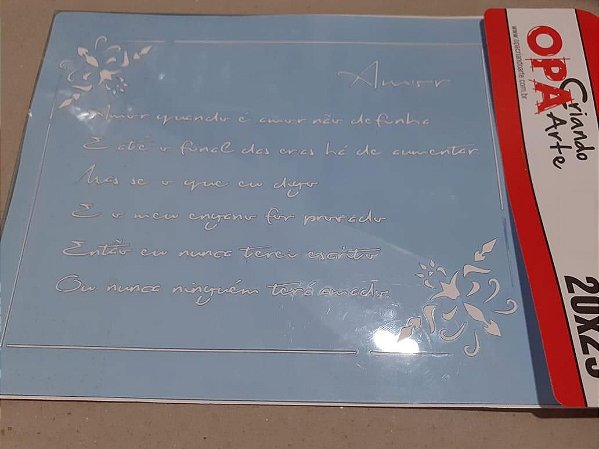 Amor
Amor quando é amor não definha
E até o final das eras há de aumentar
Mas se o que eu digo
E o meu engano for provado
Então eu nunca terei escrito
Ou nunca ninguém terá amado
OPA
Criando
Arte
www.opacriandoarte.com.br
20X25